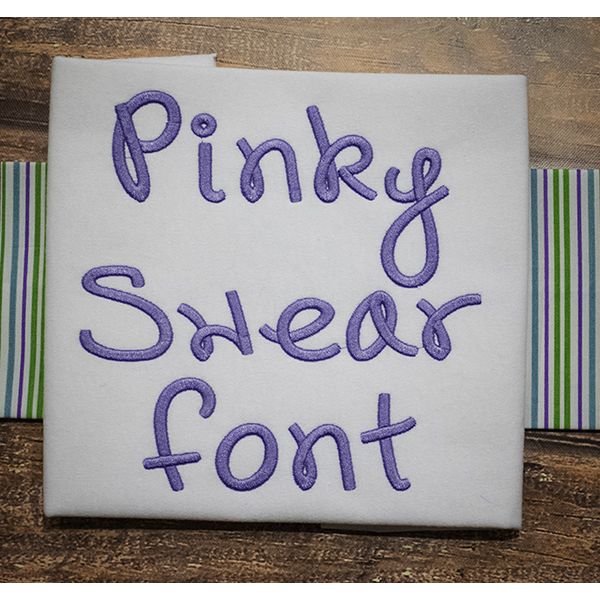 Pinky
Swear
font